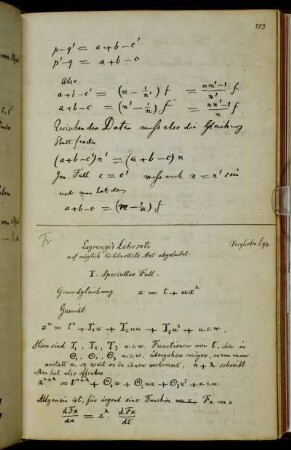 273
p-q' = a+b-c'
p'-q = a+b-c
Also
a+b-c' = (n - 1/n') f = (nn'-1)/n' f
a+b-c = (n' - 1/n) f = (nn'-1)/n f
Zwischen den Daten muss also die Gleichung
Statt finden
(a+b-c')n' = (a+b-c) n
Im Fall c = c' muss auch n = n' sein
und man hat dann
a+b-c = (n - 1/n) f
Lagrange's Lehrsatz
auf möglich leichteste Art abgeleitet.
I. Specieller Fall.
Grundgleichung x = t + ux^λ
Gesucht
x^n = t^n + T₁u + T₂uu + T₃u³ + u.s.w.
Hier sind T₁, T₂, T₃ u.s.w. Functionen von t, die in
Θ₁, Θ₂, Θ₃ u.s.w. übergehen mögen, wenn man
anstatt n, so weit es in ihnen vorkommt, n+λ schreibt
Man hat also offenbar
x^{n+λ} = t^{n+λ} + Θ₁u + Θ₂uu + Θ₃u³ + u.s.w.
Allgemein ist, für irgend eine Function Fx
dFx/du = x^λ · dFx/dt